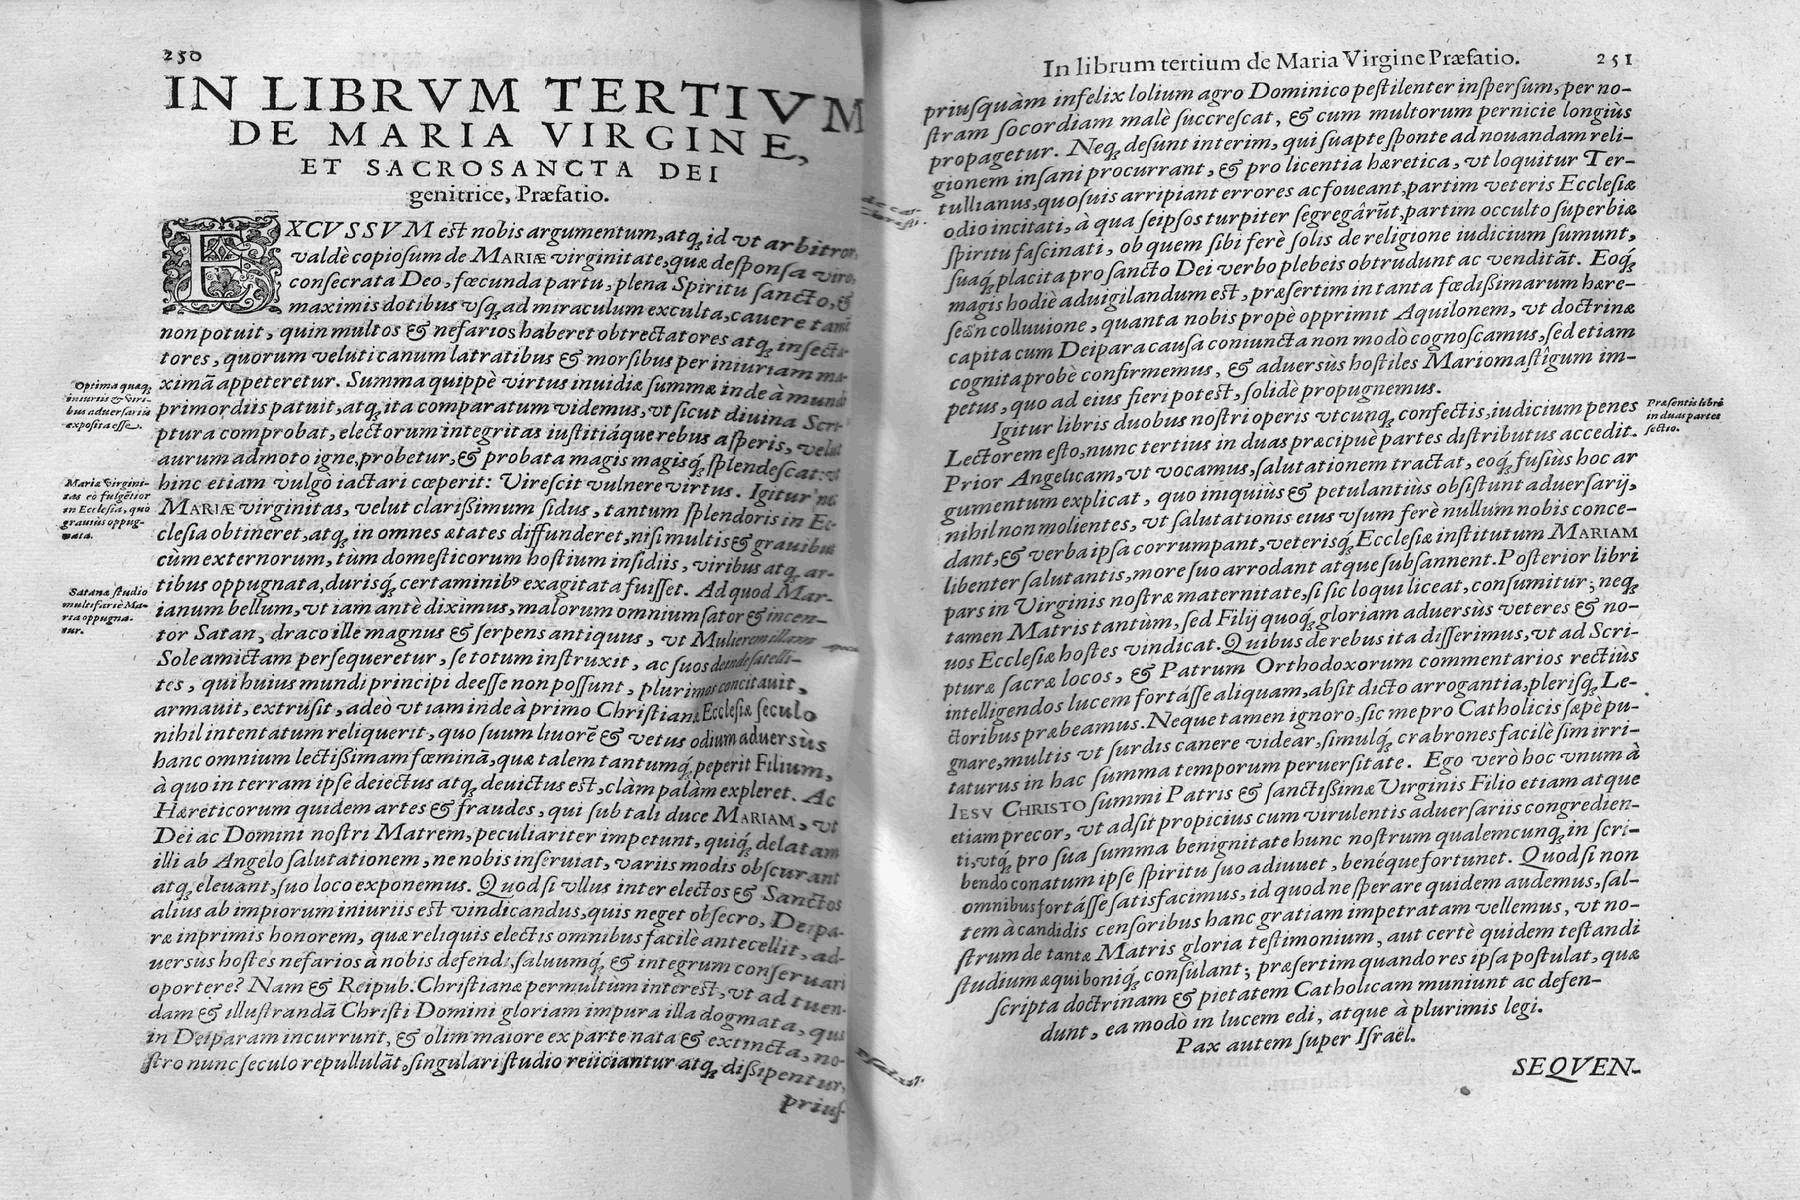 250
IN LIBRVM TERTIVM
DE MARIA VIRGINE,
ET SACROSANCTA DEI
genitrice, Præfatio.
EXCVSSVM est nobis argumentum, atq; id vt arbitror,
valdè copiosum de MARIÆ virginitate, quæ desponsa viro,
consecrata Deo, fœcunda partu, plena Spiritu sancto, &
maximis dotibus vsq; ad miraculum exculta, cauere tamē
non potuit, quin multos & nefarios haberet obtrectatores atq; insecta
tores, quorum veluti canum latratibus & morsibus per iniuriam ma-
ximā appeteretur. Summa quippè virtus inuidiæ summæ inde à mundi
primordiis patuit, atq; ita comparatum videmus, vt sicut diuina Scri
ptura comprobat, electorum integritas iustitiáque rebus asperis, velut
aurum admoto igne, probetur, & probata magis magisq́; splendescat:
hinc etiam vulgò iactari cœperit: Virescit vulnere virtus. Igitur
MARIÆ virginitas, velut clarissimum sidus, tantum splendoris in Ec
clesia obtineret, atq; in omnes ætates diffunderet, nisi multis & grauibus
cùm externorum, tùm domesticorum hostium insidiis, viribus atq; ar-
tibus oppugnata, durisq́; certaminib9 exagitata fuisset. Ad quod Mar-
ianum bellum, vt iam antè diximus, malorum omnium sator & incen-
tor Satan, draco ille magnus & serpens antiquus, vt Mulierem illam
Sole amictam persequeretur, se totum instruxit, ac suos deinde satelli-
tes, qui huius mundi principi deesse non possunt, plurimos concitauit,
armauit, extrusit, adeò vt iam inde à primo Christianæ Ecclesiæ seculo
nihil intentatum reliquerit, quo suum liuorē & vetus odium aduersùs
hanc omnium lectissimam fœminā, quæ talem tantumq́; peperit Filium,
à quo in terram ipse deiectus atq; deuictus est, clàm palàm expleret. Ac
Hæreticorum quidem artes & fraudes, qui sub tali duce MARIAM, vt
Dei ac Domini nostri Matrem, peculiariter impetunt, quiq́; delatam
illi ab Angelo salutationem, ne nobis inseruiat, variis modis obscurant
atq; eleuant, suo loco exponemus. Quod si vllus inter electos & Sanctos
alius ab impiorum iniuriis est vindicandus, quis neget obsecro, Deipa-
ræ inprimis honorem, quæ reliquis electis omnibus facilè antecellit, ad-
uersùs hostes nefarios à nobis defendi, saluumq́; & integrum conseruari
oportere? Nam & Reipub. Christianæ permultum interest, vt ad tuen-
dam & illustrandā Christi Domini gloriam impura illa dogmata, qui
in Deiparam incurrunt, & olim maiore ex parte nata & extincta, no-
stro nunc seculo repullulāt, singulari studio reiiciantur atq; dissipentur,
prius-
Optima quæq;
iniuriis & viri-
bus aduersariis
exposita esse.
Mariæ virgini-
tas eò fulgētior
in Ecclesia, quò
grauius oppug-
nata.
Satanæ studio
multifariè Ma-
ria oppugna-
tur.
In librum tertium de Maria Virgine Præfatio. 251
priusquàm infelix lolium agro Dominico pestilenter inspersum, per no-
stram socordiam malè succrescat, & cum multorum pernicie longiùs
propagetur. Neq; desunt interim, qui suapte sponte ad nouandam reli-
gionem insani procurrant, & pro licentia hæretica, vt loquitur Ter-
tullianus, quosuis arripiant errores ac foueant, partim veteris Ecclesiæ
odio incitati, à qua seipsos turpiter segregârūt, partim occulto superbiæ
spiritu fascinati, ob quem sibi ferè solis de religione iudicium sumunt,
suaq́; placita pro sancto Dei verbo plebeis obtrudunt ac venditāt. Eoq́;
magis hodiè aduigilandum est, præsertim in tanta fœdissimarum hære-
seωn colluuione, quanta nobis propè opprimit Aquilonem, vt doctrinæ
capita cum Deiparæ causa coniuncta non modò cognoscamus, sed etiam
cognita probè confirmemus, & aduersùs hostiles Mariomastîgum im-
petus, quo ad eius fieri potest, solidè propugnemus.
Igitur libris duobus nostri operis vtcunq; confectis, iudicium penes
Lectorem esto, nunc tertius in duas præcipuè partes distributus accedit.
Prior Angelicam, vt vocamus, salutationem tractat, eoq́; fusiùs hoc ar
gumentum explicat, quo iniquiùs & petulantiùs obsistunt aduersarij,
nihil non molientes, vt salutationis eius vsum ferè nullum nobis conce-
dant, & verba ipsa corrumpant, veterisq́; Ecclesiæ institutum MARIAM
libenter salutantis, more suo arrodant atque subsannent. Posterior libri
pars in Virginis nostræ maternitate, si sic loqui liceat, consumitur, neq;
tamen Matris tantùm, sed Filij quoq́; gloriam aduersùs veteres & no-
uos Ecclesiæ hostes vindicat. Quibus de rebus ita disserimus, vt ad Scri-
pturæ sacræ locos, & Patrum Orthodoxorum commentarios rectiùs
intelligendos lucem fortásse aliquam, absit dicto arrogantia, plerisq; Le-
ctoribus præbeamus. Neque tamen ignoro, sic me pro Catholicis sæpè pu-
gnare, multis vt surdis canere videar, simulq́; crabrones facilè sim irri-
taturus in hac summa temporum peruersitate. Ego verò hoc vnum à
IESV CHRISTO summi Patris & sanctissimæ Virginis Filio etiam atque
etiam precor, vt adsit propicius cum virulentis aduersariis congredien-
ti, vtq́; pro sua summa benignitate hunc nostrum qualemcunq; in scri-
bendo conatum ipse spiritu suo adiuuet, benéque fortunet. Quod si non
omnibus fortásse satisfacimus, id quod ne sperare quidem audemus, sal-
tem à candidis censoribus hanc gratiam impetratam vellemus, vt no-
strum de tantæ Matris gloria testimonium, aut certè quidem testandi
studium æqui boniq́; consulant; præsertim quando res ipsa postulat, quæ
scripta doctrinam & pietatem Catholicam muniunt ac defen-
dunt, ea modò in lucem edi, atque à plurimis legi.
Pax autem super Israël.
SEQVEN-
Præsentis libri
in duas partes
sectio.